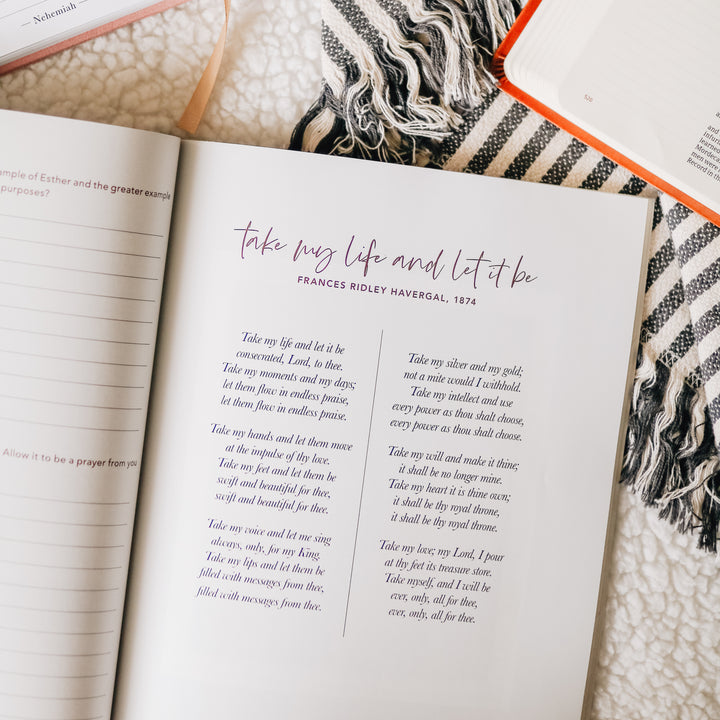 — Nehemiah —
ample of Esther and the greater example
purposes?
Allow it to be a prayer from you
take my life and let it be
FRANCES RIDLEY HAVERGAL, 1874
Take my life and let it be
consecrated, Lord, to thee.
Take my moments and my days;
let them flow in endless praise,
let them flow in endless praise.
Take my hands and let them move
at the impulse of thy love.
Take my feet and let them be
swift and beautiful for thee,
swift and beautiful for thee.
Take my voice and let me sing
always, only, for my King.
Take my lips and let them be
filled with messages from thee,
filled with messages from thee.
Take my silver and my gold;
not a mite would I withhold.
Take my intellect and use
every power as thou shalt choose,
every power as thou shalt choose.
Take my will and make it thine;
it shall be no longer mine.
Take my heart it is thine own;
it shall be thy royal throne,
it shall be thy royal throne.
Take my love; my Lord, I pour
at thy feet its treasure store.
Take myself, and I will be
ever, only, all for thee,
ever, only, all for thee.
520
and
infur
learned
Mordeca
men were
Record in th